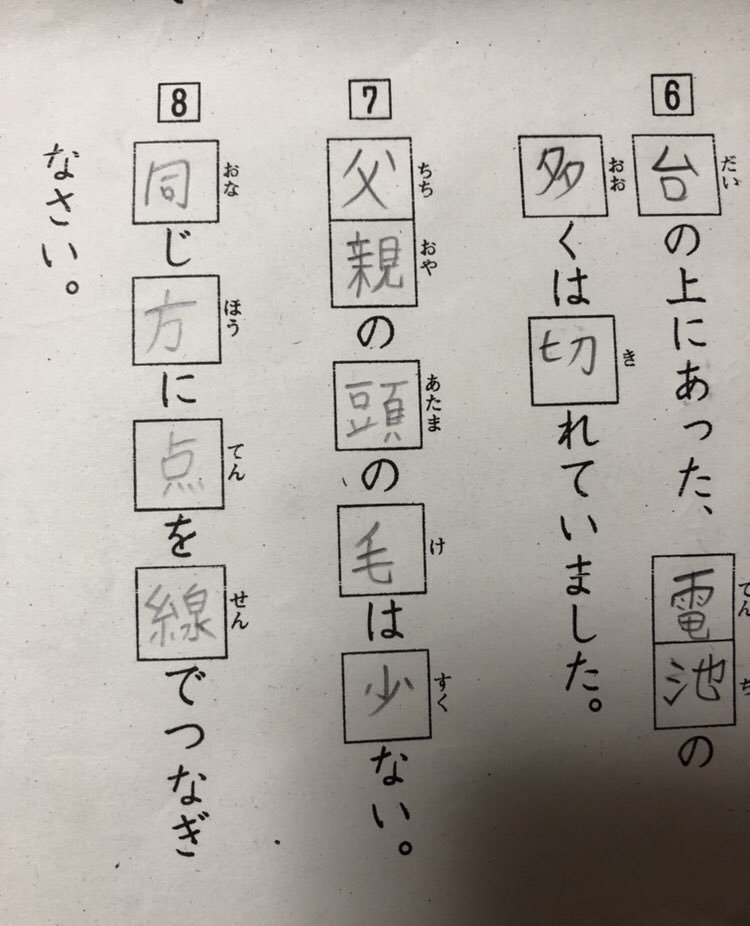 6
台の上にあった、電池の
多くは切れていました。
だい
てん
ち
おお
き
7
父親の頭の毛は少ない。
ちち
おや
あたま
け
すく
8
同じ方に点を線でつなぎ
なさい。
おな
ほう
てん
せん